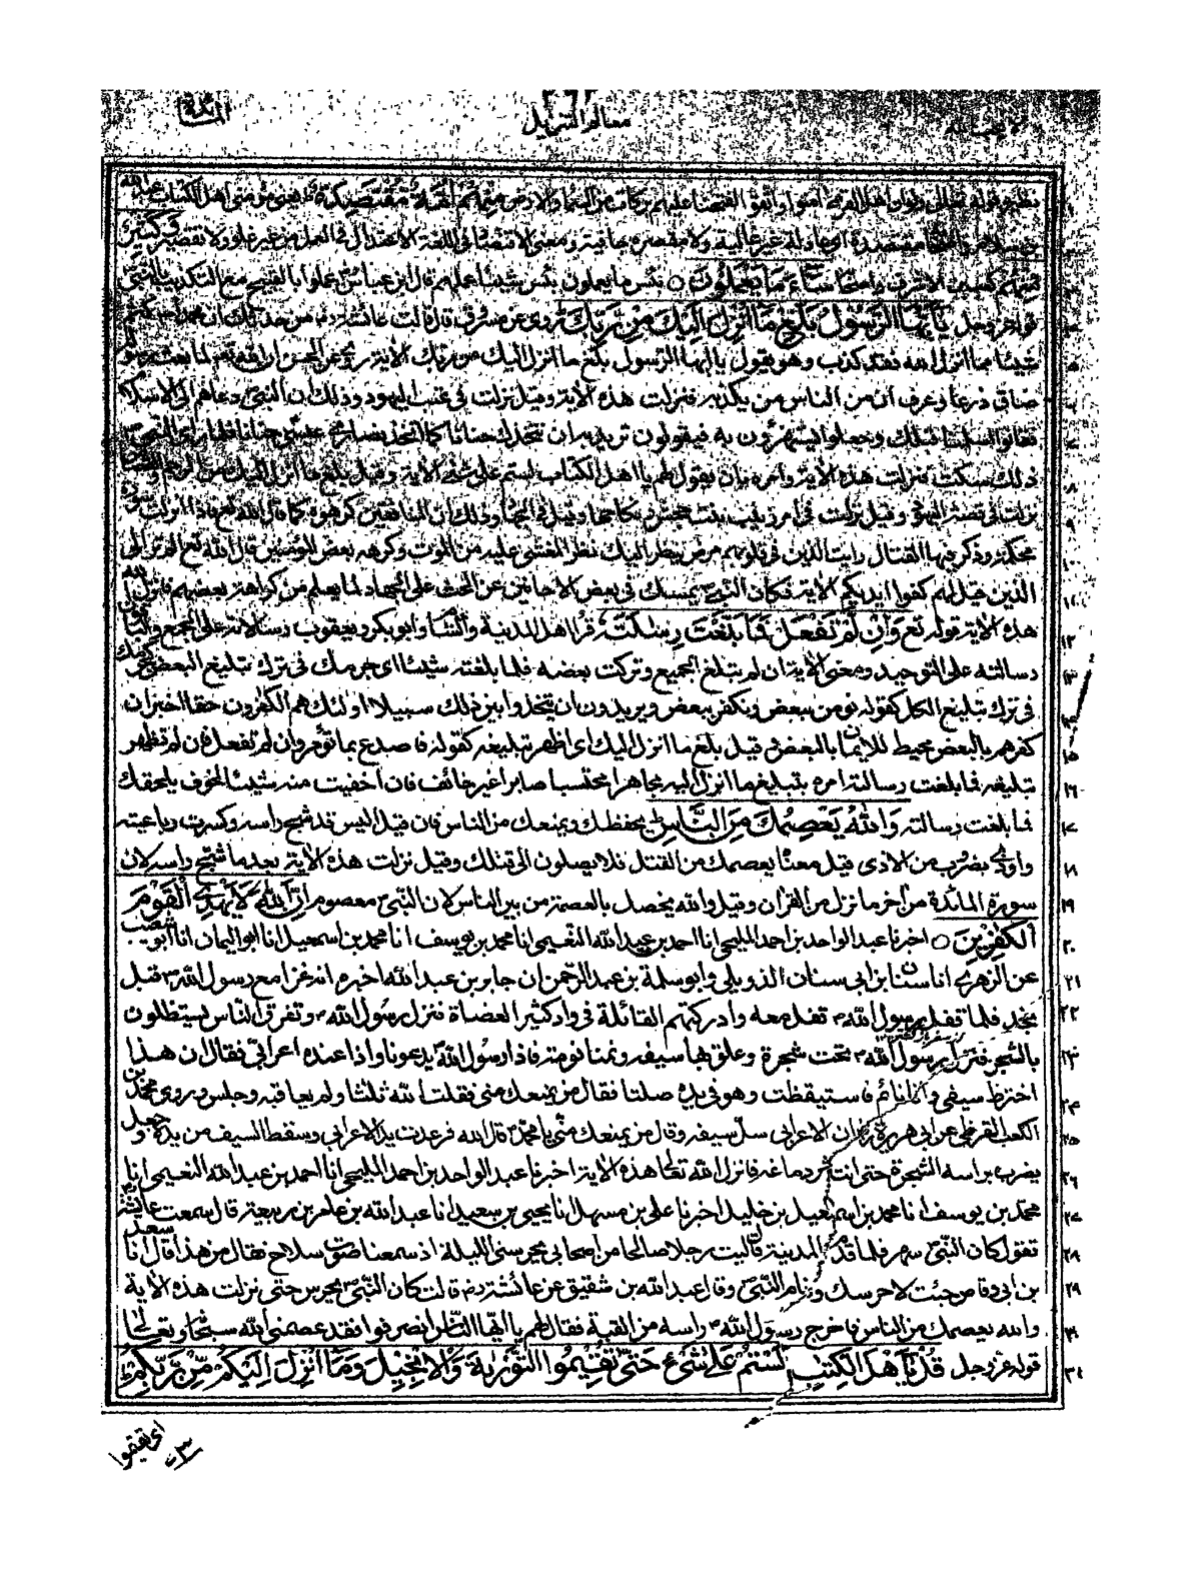 معالم التنزيل
المائدة
نظيره قوله تعالى ولو ان اهل القرى امنوا واتقوا لفتحنا عليهم بركات من السماء والارض منهم امة مقتصدة يعني مؤمني اهل الكتاب عبد الله
بن سلام مقتصدة اي عادلة غير غالية ولا مقصرة جافية ومعنى الاقتصاد في اللغة الاعتدال في العمل من غير غلو ولا تقصير وكثير
منهم كعب بن الاشرف واصحابه ساء ما يعملون ○ بئس ما يعملون بئس شيئا عملهم قال ابن عباس عملوا بالقبيح مع التكذيب بالنبي
قوله عز وجل يايها الرسول بلغ ما انزل اليك من ربك روي عن مسروق قال قالت عائشة رض من حدثك ان محمدا كتم
شيئا مما انزل الله فقد كذب وهو يقول يا ايها الرسول بلغ ما انزل اليك من ربك الاية روي عن الحسن ان الله تع لما بعث رسوله
ضاق ذرعا وعرف ان من الناس من يكذبه فنزلت هذه الاية وقيل نزلت في عتب اليهود وذلك ان النبي دعاهم الى الاسلام
فقالوا اسلمنا قبلك وجعلوا يستهزؤن به فيقولون تريد ان نتخذك حنانا كما اتخذ النصارى عيسى حنانا فلما راى النبي
ذلك سكت فنزلت هذه الاية وامره بان يقول لهم يا اهل الكتاب لستم على شئ الاية وقيل بلغ ما انزل اليك من الرجم والقصاص
نزلت في قصة اليهود وقيل نزلت في امر زينب بنت جحش ونكاحها وقيل في الجهاد وذلك ان المنافقين كرهوه كما قال الله تع فاذا انزلت سورة
محكمة وذكر فيها القتال رايت الذين في قلوبهم مرض ينظرون اليك نظر المغشي عليه من الموت وكرهه بعض المؤمنين قال الله تع الم تر الى
الذين قيل لهم كفوا ايديكم الاية فكان النبي يمسك في بعض الاحائين عن الحث على الجهاد لما يعلم من كراهة بعضهم فانزل الله
هذه الاية قوله تع وان لم تفعل فما بلغت رسلته قرا اهل المدينة والشام وابو بكر ويعقوب رسالاته على الجمع والباقون
رسالته على التوحيد ومعنى الاية ان لم تبلغ الجميع وتركت بعضه فلما بلغته شيئا اي جرمك في ترك تبليغ البعض كجرمك
في ترك تبليغ الكل كقوله نؤمن ببعض ونكفر ببعض ويريدون ان يتخذوا بين ذلك سبيلا اولئك هم الكفرون حقا اخبر ان
كفرهم بالبعض محيط للايمان بالبعض وقيل بلغ ما انزل اليك اي اظهر تبليغه كقوله فاصدع بما تؤمر وان لم تفعل فان لم تظهر
تبليغه فما بلغت رسالته امره بتبليغ ما انزل اليه مجاهرا محتسبا صابرا غير خائف فان اخفيت منه شيئا لخوف يلحقك
فما بلغت رسالته والله يعصمك من الناس ط يحفظك ويمنعك من الناس فان قيل اليس قد شج راسه وكسرت رباعيته
واوذي بضرب من الاذى قيل معناه يعصمك من القتل فلا يصلون الى قتلك وقيل نزلت هذه الاية بعد ما شج راسه لان
سورة المائدة من اخر ما نزل من القران وقيل والله يخصك بالعصمة من بين الناس لان النبي معصوم ان الله لا يهدي القوم
الكفرين ○ اخبرنا عبد الواحد بن احمد المليحي انا احمد بن عبد الله النعيمي انا محمد بن يوسف انا محمد بن اسمعيل انا ابو اليمان انا شعيب
عن الزهري انا سنان بن ابي سنان الدويلي وابو سلمة بن عبد الرحمن ان جابر بن عبد الله اخبره انه غزا مع رسول الله قبل
نجد فلما قفل رسول الله قفل معه وادركتهم القائلة في واد كثير العضاة فنزل رسول الله وتفرق الناس يستظلون
بالشجر فنزل رسول الله تحت شجرة وعلق بها سيفه ونمنا نومة فاذا رسول الله يدعونا واذا عنده اعرابي فقال ان هذا
اخترط سيفي وانا نائم فاستيقظت وهو في يده صلتا فقال من يمنعك مني فقلت الله ثلثا ولم يعاقبه وجلس وروى محمد بن
الكعب القرظي عن ابي هريرة ان الاعرابي سل سيفه وقال من يمنعك مني يا محمد قال الله فرعدت يد الاعرابي وسقط السيف من يده وجعل
يضرب براسه الشجرة حتى انتثر دماغه فانزل الله تعالى هذه الاية اخبرنا عبد الواحد بن احمد المليحي انا احمد بن عبد الله النعيمي انا
محمد بن يوسف انا محمد بن اسمعيل بن خليل اخبرنا علي بن مسهر انا يحيى بن سعيد انا عبد الله بن عامر بن ربيعة قال سمعت عائشة
تقول كان النبي سهر فلما قدم المدينة قال ليت رجلا صالحا من اصحابي يحرسني الليلة اذ سمعنا صوت سلاح فقال من هذا قال انا سعد
بن ابي وقاص جئت لاحرسك ونام النبي وقال عبد الله بن شقيق عن عائشة رض قالت كان النبي يحرس حتى نزلت هذه الاية
والله يعصمك من الناس فاخرج رسول الله راسه من القبة فقال لهم يا ايها الناس انصرفوا فقد عصمني الله سبحانه وتعالى
قوله عز وجل قل ياهل الكتب لستم على شئ حتى تقيموا التورىة والانجيل وما انزل اليكم من ربكم ط
اي تقيموا